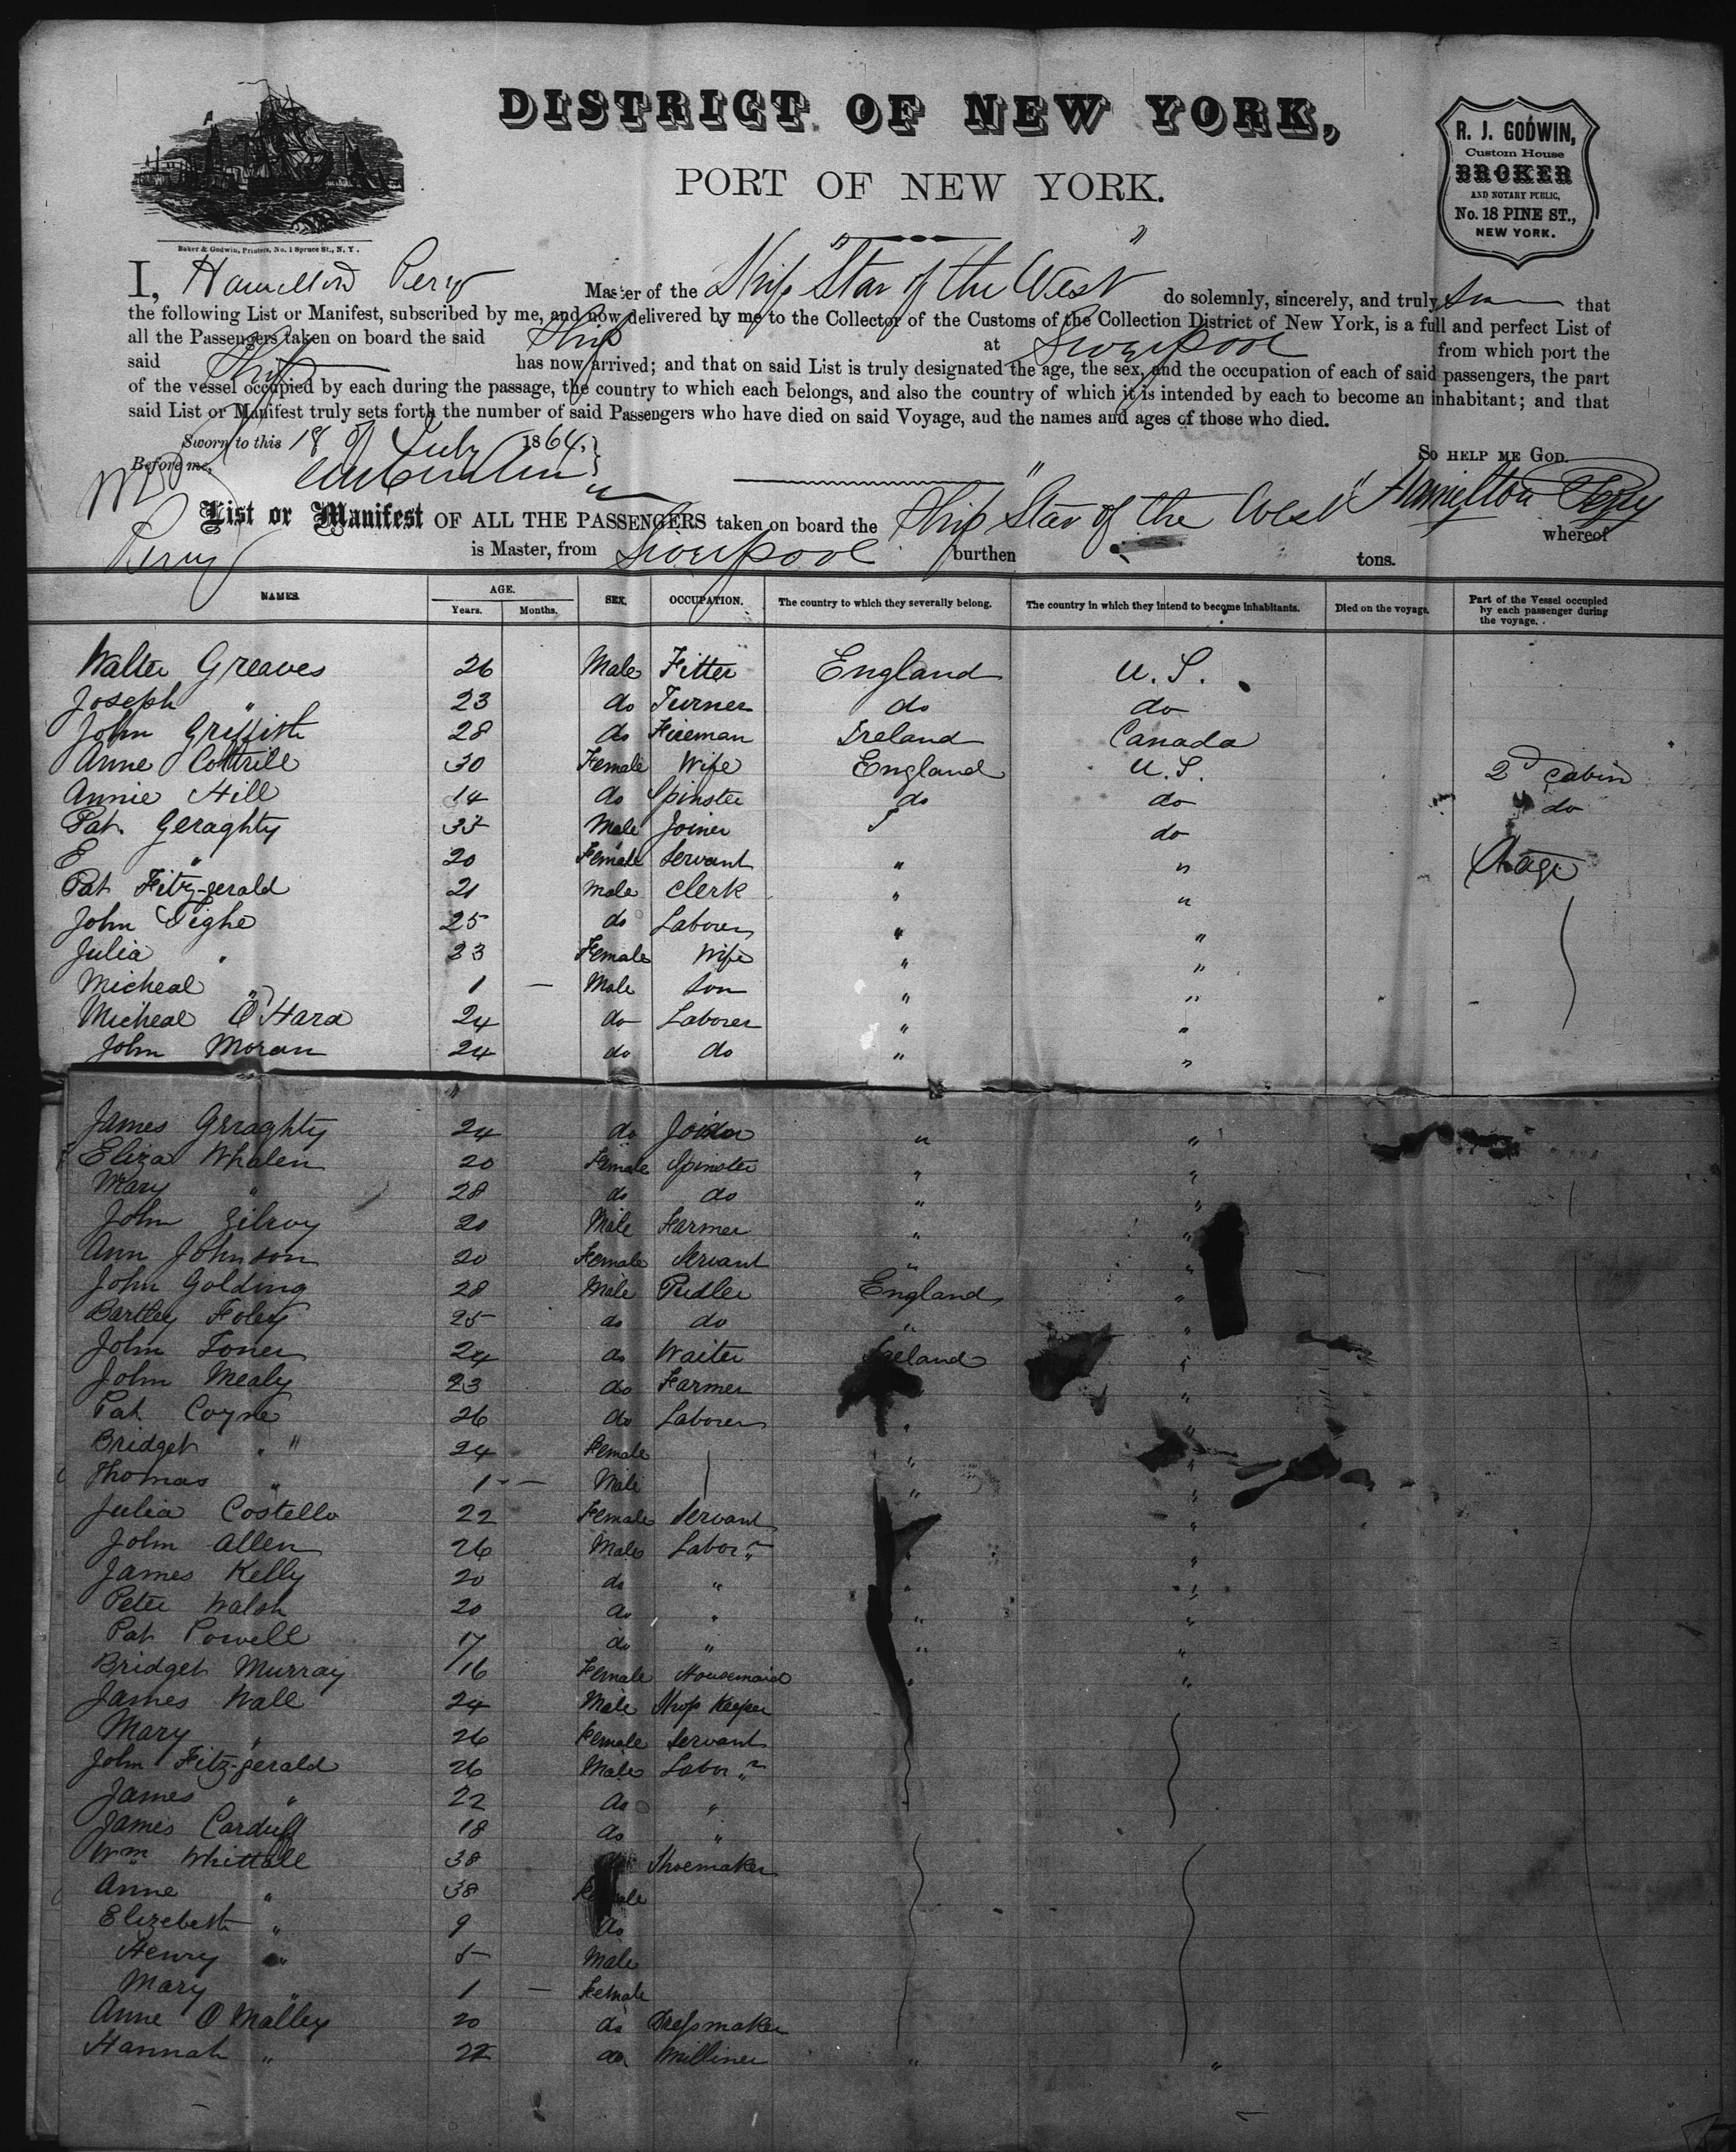 DISTRICT OF NEW YORK,
PORT OF NEW YORK.
R. J. GODWIN,
Custom House
BROKER
AND NOTARY PUBLIC,
No. 18 PINE ST.,
NEW YORK.
Baker & Godwin, Printers, No. 1 Spruce St., N. Y.
I, Hamilton Perry Master of the Ship "Star of the West" do solemnly, sincerely, and truly that
the following List or Manifest, subscribed by me, and now delivered by me to the Collector of the Customs of the Collection District of New York, is a full and perfect List of
all the Passengers taken on board the said Ship at Liverpool from which port the
said Ship has now arrived; and that on said List is truly designated the age, the sex, and the occupation of each of said passengers, the part
of the vessel occupied by each during the passage, the country to which each belongs, and also the country of which it is intended by each to become an inhabitant; and that
said List or Manifest truly sets forth the number of said Passengers who have died on said Voyage, and the names and ages of those who died.
Sworn to this 18 of July 1864.
So help me God.
Before me,
List or Manifest OF ALL THE PASSENGERS taken on board the Ship "Star of the West" Hamilton Perry whereof
Perry is Master, from Liverpool burthen tons.
NAMES. AGE. Years. Months. SEX. OCCUPATION. The country to which they severally belong. The country in which they intend to become inhabitants. Died on the voyage. Part of the Vessel occupied by each passenger during the voyage.
Walter Greaves 26 Male Fitter England U. S.
Joseph " 23 do Turner do do
John Griffith 28 do Fireman Ireland Canada
Anne Cottrill 30 Female Wife England U. S. 2d Cabin
Annie Hill 14 do Spinster do do do
Pat. Geraghty 35 Male Joiner do
E " 20 Female Servant " "
Pat Fitz-gerald 21 Male Clerk " "
John Tighe 25 do Laborer " "
Julia " 23 Female Wife " "
Micheal " 1 — Male Son " "
Micheal O'Hara 24 do Laborer " "
John Moran 24 do do " "
James Geraghty 24 do " "
Eliza Whalen 20 Female Spinster " "
Mary " 28 do do " "
John Gilroy 20 Male Farmer " "
Ann Johnson 20 Female Servant " "
John Golding 28 Male Pedler England "
Bartley Foley 25 do do " "
John Toner 24 do Waiter Ireland "
John Mealy 23 do Farmer " "
Pat Coyne 26 do Laborer " "
Bridget " 24 Female " "
Thomas " 1 — Male " "
Julia Costello 22 Female Servant "
John Allen 26 Male Labor.r " "
James Kelly 20 do " " "
Peter Walsh 20 do " " "
Pat Powell 17 do " " "
Bridget Murray 16 Female Housemaid " "
James Wall 24 Male Shop Keeper
Mary " 26 Female Servant
John Fitz-gerald 26 Male Labor.r
James " 22 do "
James Carduff 18 do "
Wm Whittall 38 Shoemaker
Anne " 38 Female
Elizebeth " 9 do
Henry " 5 Male
Mary " 1 — Female
Anne O Malley 20 do Dressmaker
Hannah " 22 do Milliner " "